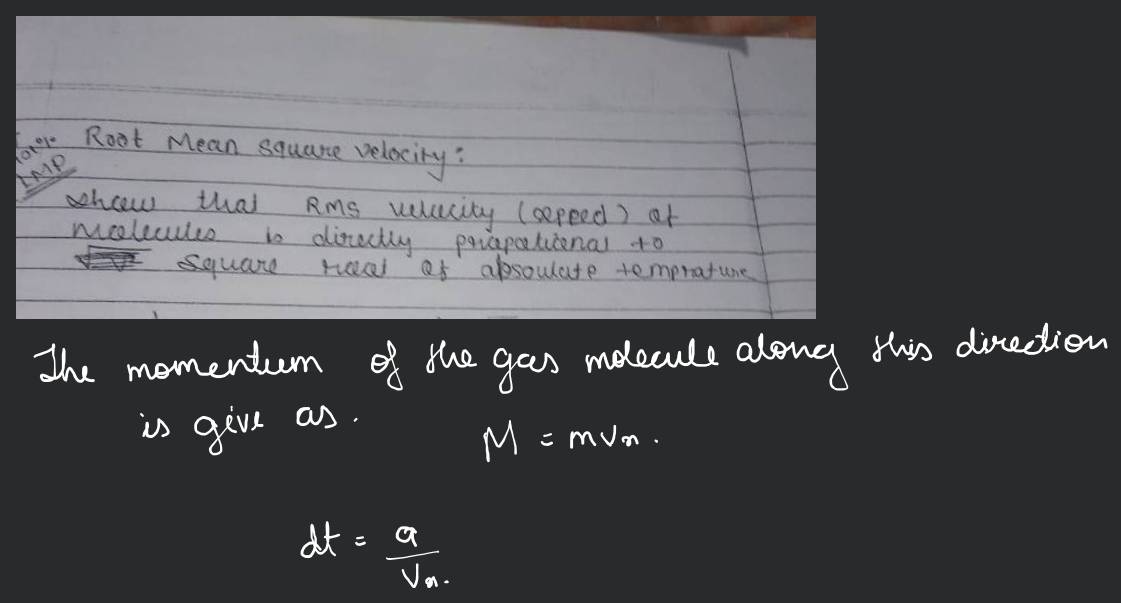 IMP
Root Mean square velocity:
show that RMS velocity (speed) of
molecules is directly propotional to
square root of absoulate temprature
The momentum of the gas molecule along this direction
is give as.
M = mvx.
dt = a / vx.